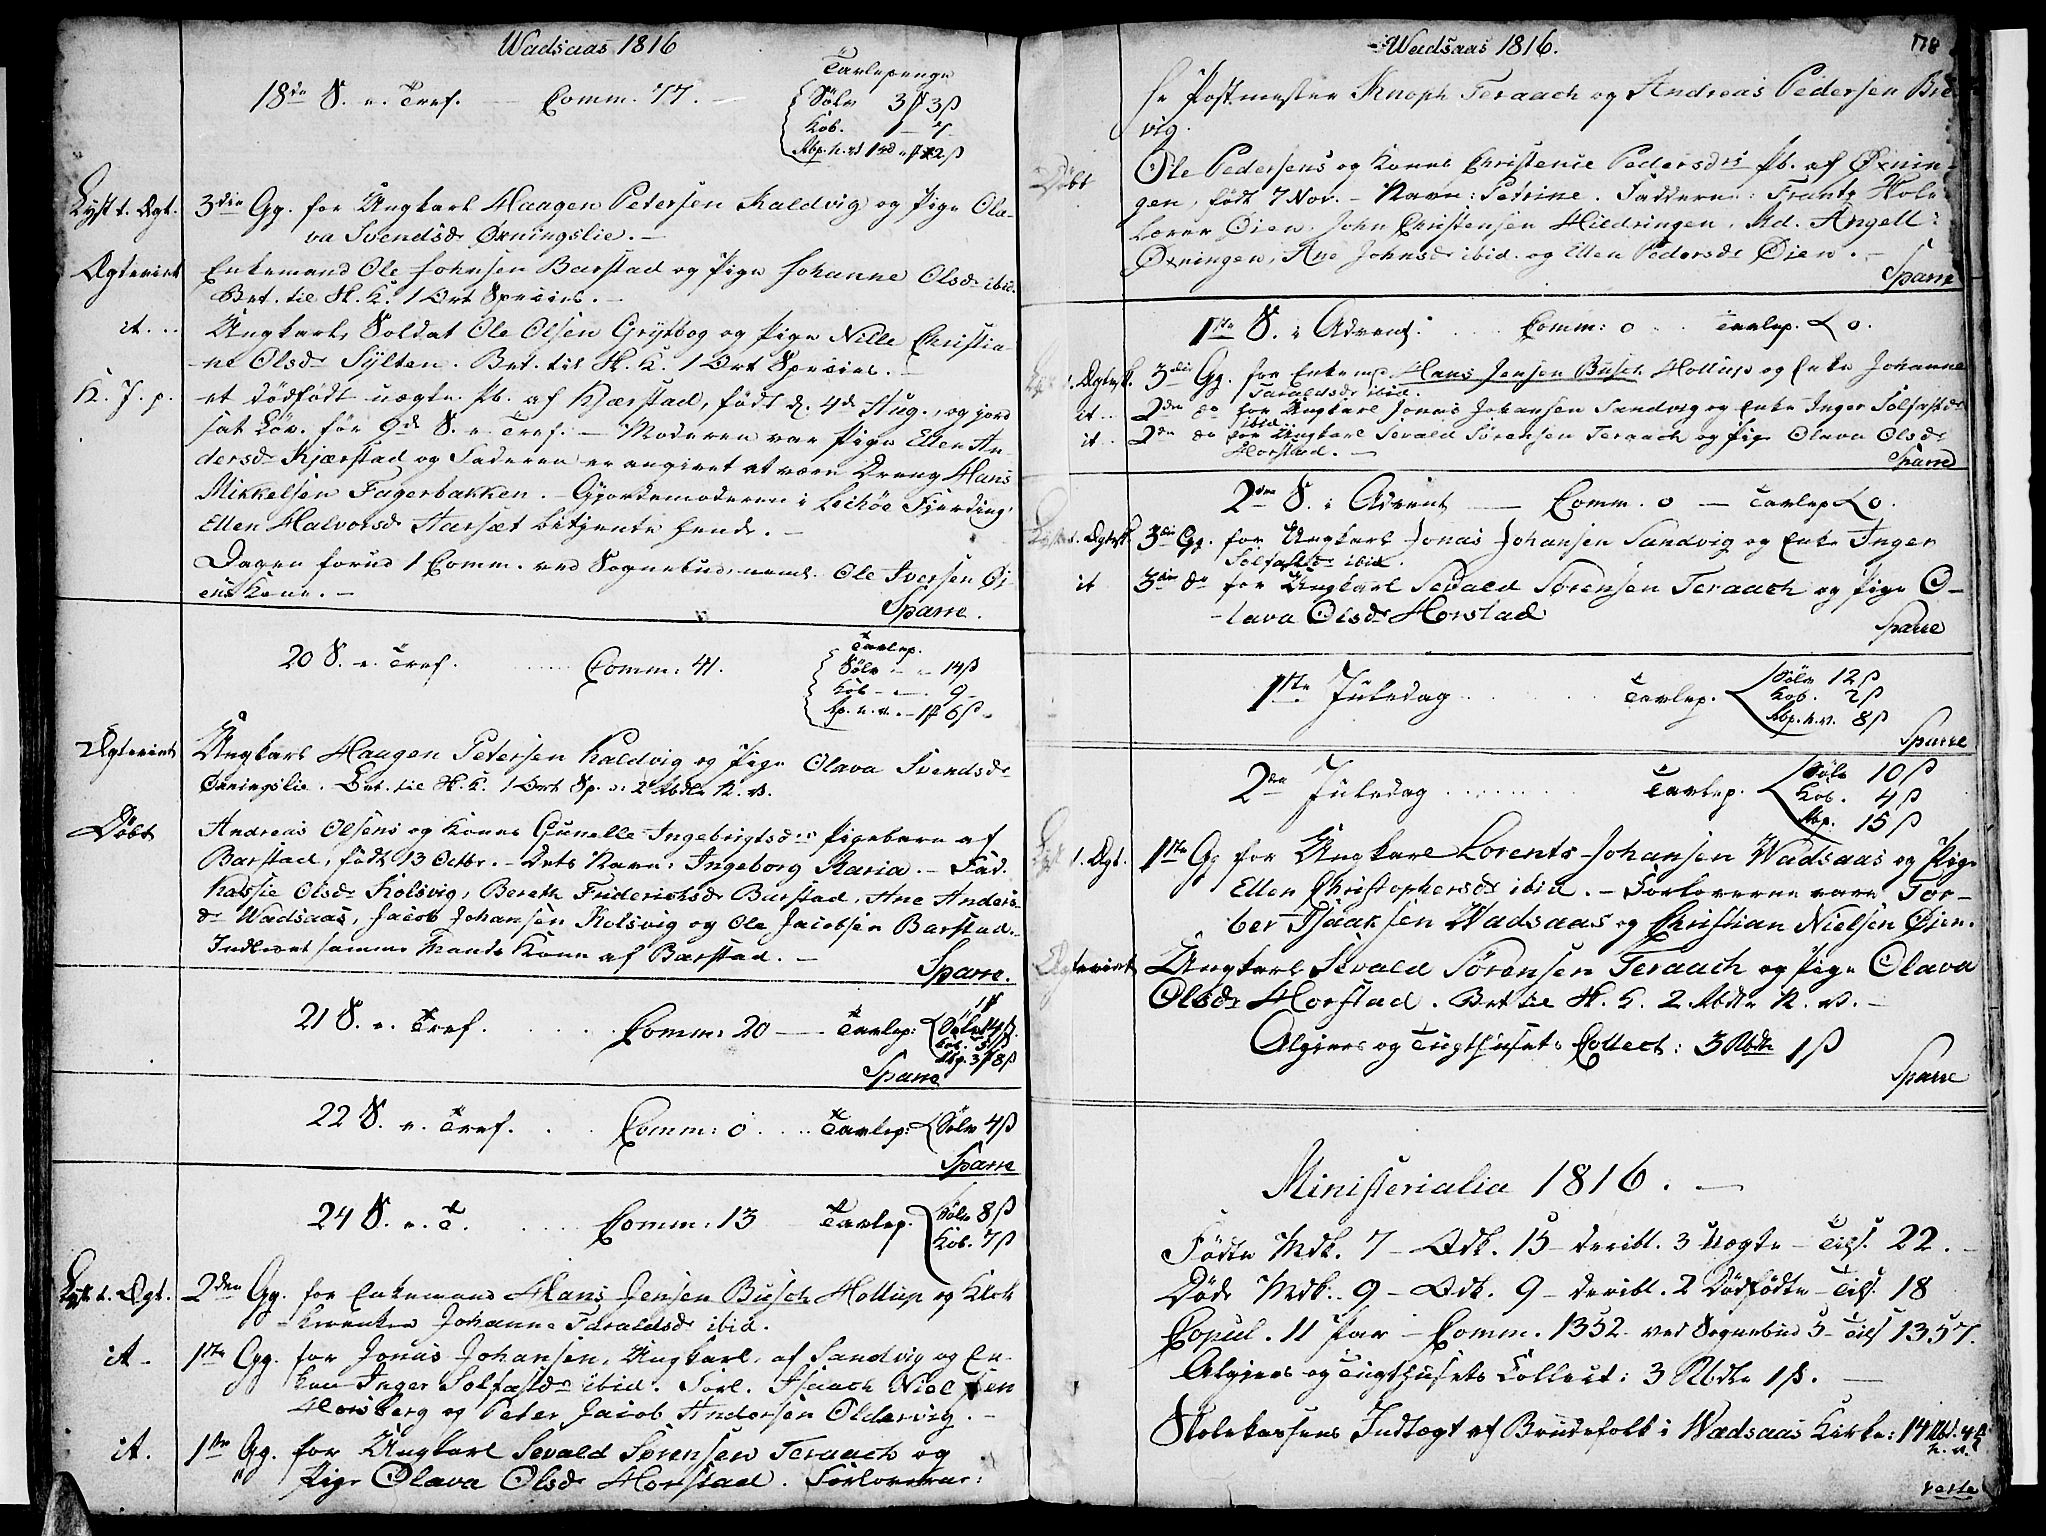 Wadsaas 1816
18de S. e. Tref. — Comm. 77. —
Tavlepenge
Sølv 3 ß
Kob.
Lyst t. Ægt. 3die Gg. for Ungkarl Haagen Petersen Kaldvig og Pige Ola-
va Svendsdr Øxningslie. —
Ægteviet Enkemand Ole Johnsen Barstad og Pige Johanne Olsdr ibid.
Bet. til Sk. K. 1 Ort Species. —
it. .. Ungkarl, Soldat Ole Olsen Grytbog og Pige Nille Christia-
ne Olsdr Sylten. Bet. til Sk. K. 1 Ort Species. —
K. J. p. et dødfødt uægte Pb. af Kjærstad, født d. 4de Aug., og jord
sat Løv. før 9de S. e. Tref. — Moderen var Pige Ellen An-
dersdr Kjærstad og Faderen er angivet at være Dreng Hans
Mikkelsen Fagerbakken. — Gjordemoderen i Lechøe Fjerding,
Ellen Halvorsdr Aarsæt betjente hende. —
Dagen forud 1 Comm. ved Sognebud, neml. Ole Iversen Øi-
ens Kone. —
Sparre.
20 S. e. Tref. ..... Comm: 41.
Tavlep.
Sølv — 14 ß
Kob — 9
Rp. n. v. — 1 6 ß
Ægteviet Ungkarl Haagen Petersen Kaldvig og Pige Olava Svendsdr
Øxningslie. Bet. til Sk. K. 1 Ort Sp. = 2 Rbdlr N. V.
Døbt Andreas Olsens og Kones Gunelle Ingebrigtsdrs Pigebarn af
Barstad, født 13 Octbr. — Dets Navn: Ingeborg Maria. — Fad.
Kassie Olsdr Kolsvig, Bereth Friderichsdr Barstad, Ane Anders-
dr Wadsaas, Jacob Johansen Kolsvig og Ole Jacobsen Barstad.
Indledet samme Mands Kone af Barstad. —
Sparre.
21 S. e. Tref. .... Comm: 20 — Tavlep:
Sparre
22 S. e. Tref. .. Comm: 0 ... Tavlep: Sølv 4 ß
Sparre
24 S. e. T. .... Comm: 13 Tavlep. Sølv 8 ß
Kob. 7 ß
Lyst t. Ægt. 2den Gg. for Enkemand Hans Jensen Busch Hollup og Klok
kerenken Johanne Taraldsdr ibid.
it — 1ste Gg. for Jonas Johansen, Ungkarl, af Sandvig og En-
ken Inger Solfæstdr ibid. Forl. Isaach Nielsen
Horsberg og Peter Jacob Andersen Oldervig. —
it. 1ste Gg. for Ungkarl Sevald Sørensen Teraach og
Pige Olava Olsdr Horstad. Forloverne:
Wadsaas 1816.
178
Hr Postmester Knoph Teraach og Andreas Pedersen Bre
vig.
Døbt Ole Pedersens og Kones Christence Pedersdrs Pb. af Øxnin-
gen, født 7 Nov. — Navn: Petrine. Fadderne: Frantz Hole
lærer Øien. John Christensen Hildringen, Md. Angell:
Øxningen, Ane Johnsdr ibid. og Ellen Pedersdr Øien. —
Sparre
1ste S. i Advent. .... Comm: 0 .. Tavlep. 0.
Lyst t. Ægtesk. 3die Gg. for Enkemd. Hans Jensen Busch Hollup og Enke Johanne
Taraldsdr ibid.
it .. 2den do for Ungkarl Jonas Johansen Sandvig og Enke Inger Solfæstdr
ibid.
it .. 2den do for Ungkarl Sevald Sørensen Teraach og Pige Olava Olsdr
Horstad. —
Sparre
2den S. i Advent — Comm. 0 — Tavlep 0.
Lyst t. Ægtesk. 3die Gg. for Ungkarl Jonas Johansen Sandvig og Enke Inger
Solfæstdr ibid.
it 3die do for Ungkarl Sevald Sørensen Teraach og Pige O-
lava Olsdr Horstad
Sparre
1ste Juledag ...... Tavlep. Sølv 12 ß
Kob. 2 ß
Rbp. n. v. 8 ß
Sparre
2den Juledag ....... Tavlep. Sølv 10 ß
Kob. 4 ß
Rbp. 15 ß
Lyst t. Ægt. 1ste Gg for Ungkarl Lorents Johansen Wadsaas og Pige
Ellen Christophersdr ibid. — Forloverne vare Tor-
ber Isaaksen Wadsaas og Christian Nielsen Øien.
Ægteviet Ungkarl Sevald Sørensen Teraach og Pige Olava
Olsdr Horstad. Bet til Sk. K. 2 Rbdlr N. V. —
Algiers og Tugthusets Collect: 3 Rbdlr 1 ß
Sparre
Ministerialia 1816. —
Fødte Mdk. 7 — Qdk. 15 — deribl. 3 uægte — Tils. 22. —
Døde Mdk. 9 — Qdk. 9 — deribl. 2 Dødfødte — Tils. 18
Copul. 11 Par — Comm. 1352. ved Sognebud 5 — Tils 1357.
Algiers og Tugthusets Collect: 3 Rbdlr 1 ß. —
Skolekassens Indtægt af Brudefolk i Wadsaas Kirke: 14 Rbd. 4
n. v.